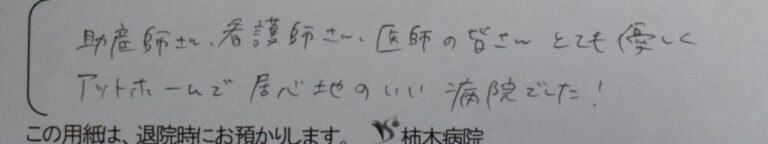 助産師さん、看護師さん、医師の皆さん とても優しく
アットホームで 居心地のいい 病院でした!
この用紙は、退院時にお預かりします。 柿木病院